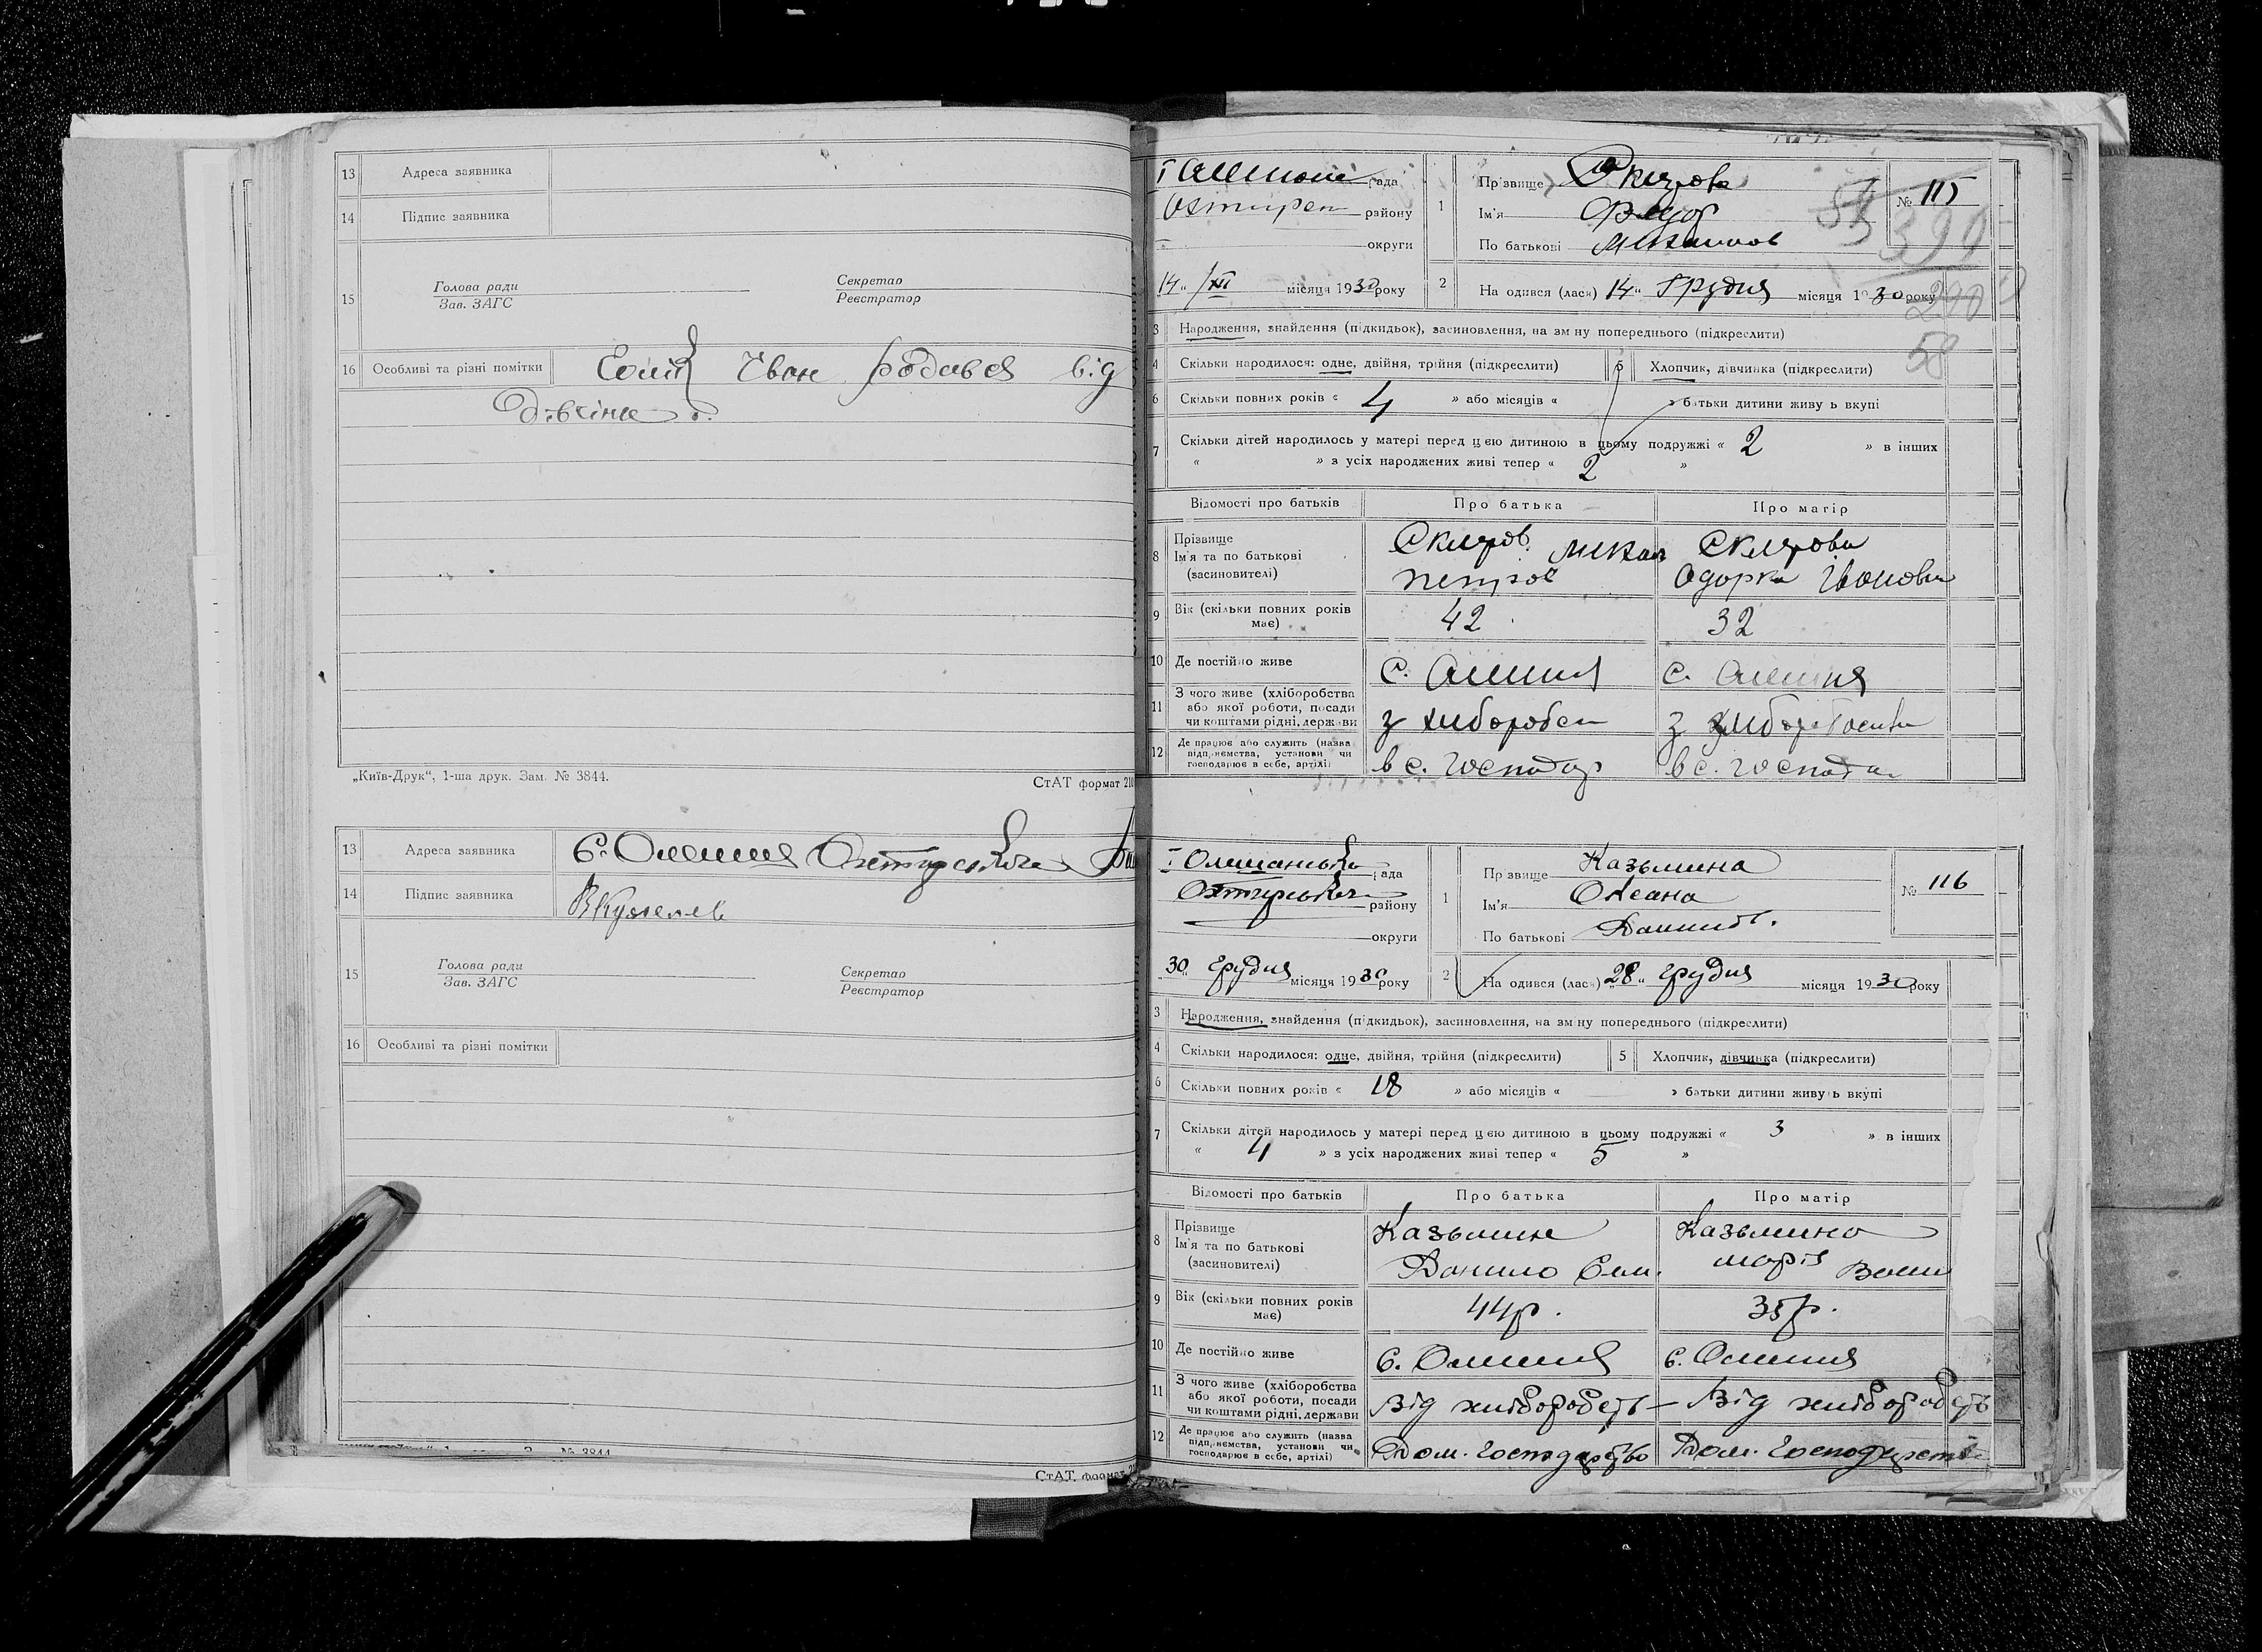 13 Адреса заявника
14 Підпис заявника
15 Голова ради Секретар
Зав. ЗАГС Реєстратор
16 Особливі та різні помітки Іван родився від
дівчіни
„Київ-Друк“, 1-ша друк. Зам. № 3844.
СтАТ формат 210
13 Адреса заявника с. Олешня Охтирського
14 Підпис заявника
15 Голова ради Секретар
Зав. ЗАГС Реєстратор
16 Особливі та різні помітки
№ 3844
СтАТ формат
І рада
Охтирс району
округи
14 " /XII місяця 1930 року
1 Прізвище
Ім'я Федор
По батькові Михайлов
№ 115
399
290
58
2 Народився (лася) 14 " Грудня місяця 1930 року
3 Народження, знайдення (підкидьок), засиновлення, на зміну попереднього (підкреслити)
4 Скільки народилося: одне, двійня, трійня (підкреслити) 5 Хлопчик, дівчинка (підкреслити)
6 Скільки повних років « 4 » або місяців « » батьки дитини живуть вкупі
7 Скільки дітей народилось у матері перед цією дитиною в цьому подружжі « 2 » в інших
« » з усіх народжених живі тепер « 2 »
Відомості про батьків Про батька Про матір
8 Прізвище
Ім'я та по батькові
(засиновителі)
Скляров Михай
Петров
Склярова
Одарка Івановна
9 Вік (скільки повних років має) 42 32
10 Де постійно живе с. Олешня с. Олешня
11 З чого живе (хліборобства
або якої роботи, посади
чи коштами рідні, держави
з хліборобст з
12 Де працює або служить (назва
підприємства, установи чи
господарює в себе, артілі)
в с. господар в с. господа
І Олешанська рада
Охтирського району
округи
30 " Грудня місяця 1930 року
1 Прізвище Казьмина
Ім'я Оксана
По батькові Данилів.
№ 116
2 Народився (лася) 28 " Грудня місяця 1930 року
3 Народження, знайдення (підкидьок), засиновлення, на зміну попереднього (підкреслити)
4 Скільки народилося: одне, двійня, трійня (підкреслити) 5 Хлопчик, дівчинка (підкреслити)
6 Скільки повних років « 18 » або місяців « » батьки дитини живуть вкупі
7 Скільки дітей народилось у матері перед цією дитиною в цьому подружжі « 3 » в інших
« 4 » з усіх народжених живі тепер « 5 »
Відомості про батьків Про батька Про матір
8 Прізвище
Ім'я та по батькові
(засиновителі)
Казьмин
Данило Сем.
Казьмина
Марія
9 Вік (скільки повних років має) 44 р. 35 р.
10 Де постійно живе с. Олешня с. Олешня
11 З чого живе (хліборобства
або якої роботи, посади
чи коштами рідні, держави
Від хліборобств Від хліборобств
12 Де працює або служить (назва
підприємства, установи чи
господарює в себе, артілі)
Дом. Господарство Дом. Господарств